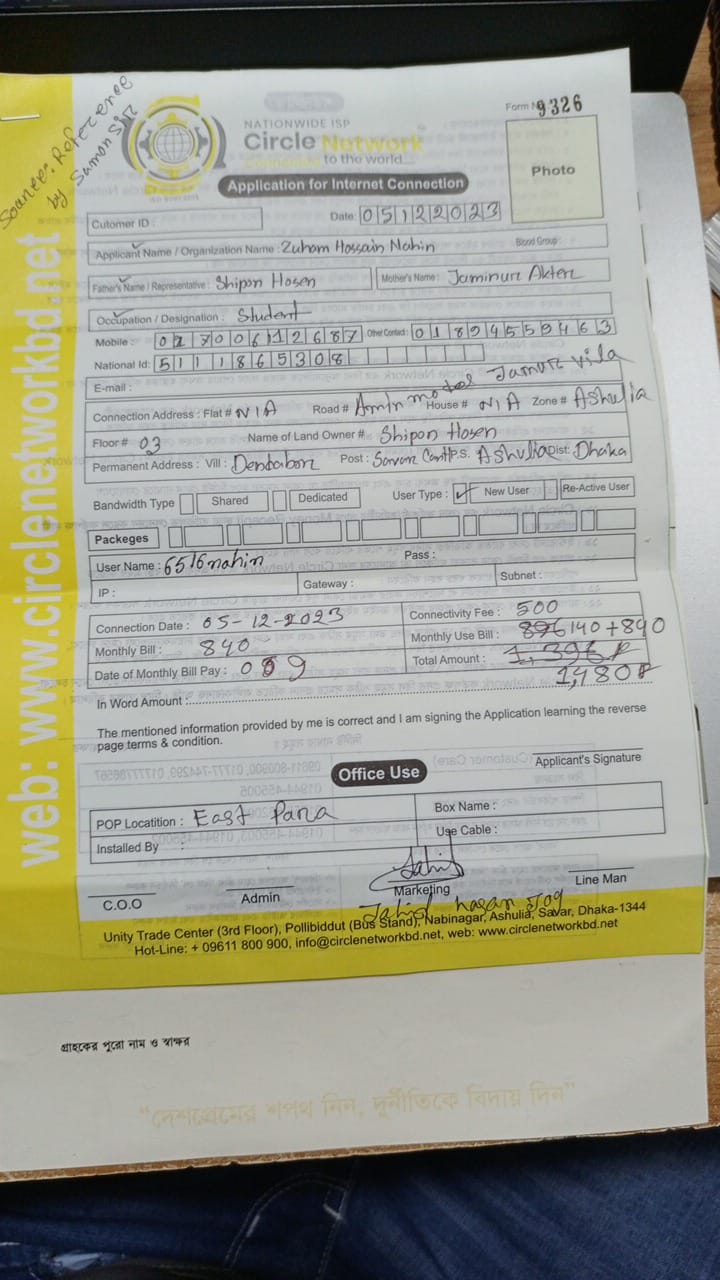 Source: Reference
by Sumon Sir
Form N 9326
NATIONWIDE ISP
Circle Network
Connecting to the world...
Photo
Application for Internet Connection
Cutomer ID :
Date: 05122023
Applicant Name / Organization Name : Zuham Hossain Nahin Blood Group :
Father's Name / Representative : Shipon Hosen Mother's Name : Jaminur Akter
Occupation / Designation : Student
Mobile : 01700612687 Other Contact : 01894559463
National Id: 5111865308
E-mail :
Connection Address : Flat # N/A Road # Amin model Jamur vila House # N/A Zone # Ashulia
Floor # 03 Name of Land Owner # Shipon Hosen
Permanent Address : Vill : Dendabor Post : Savar Cant P.S. Ashulia Dist: Dhaka
Bandwidth Type Shared Dedicated User Type : New User Re-Active User
Packeges
User Name : 6516nahin Pass :
IP : Gateway : Subnet :
Connection Date : 05-12-2023 Connectivity Fee : 500
Monthly Bill : 840 Monthly Use Bill : 140+840
Date of Monthly Bill Pay : Total Amount :
1,480
In Word Amount :
The mentioned information provided by me is correct and I am signing the Application learning the reverse
page terms & condition.
Applicant's Signature
Office Use
POP Locatition : East Para Box Name :
Installed By : Use Cable :
C.O.O Admin Marketing Line Man
Jahid hasan
Unity Trade Center (3rd Floor), Pollibiddut (Bus Stand), Nabinagar, Ashulia, Savar, Dhaka-1344
Hot-Line: + 09611 800 900, info@circlenetworkbd.net, web: www.circlenetworkbd.net
web: www.circlenetworkbd.net
গ্রাহকের পুরো নাম ও স্বাক্ষর
“দেশপ্রেমের শপথ নিন, দুর্নীতিকে বিদায় দিন”